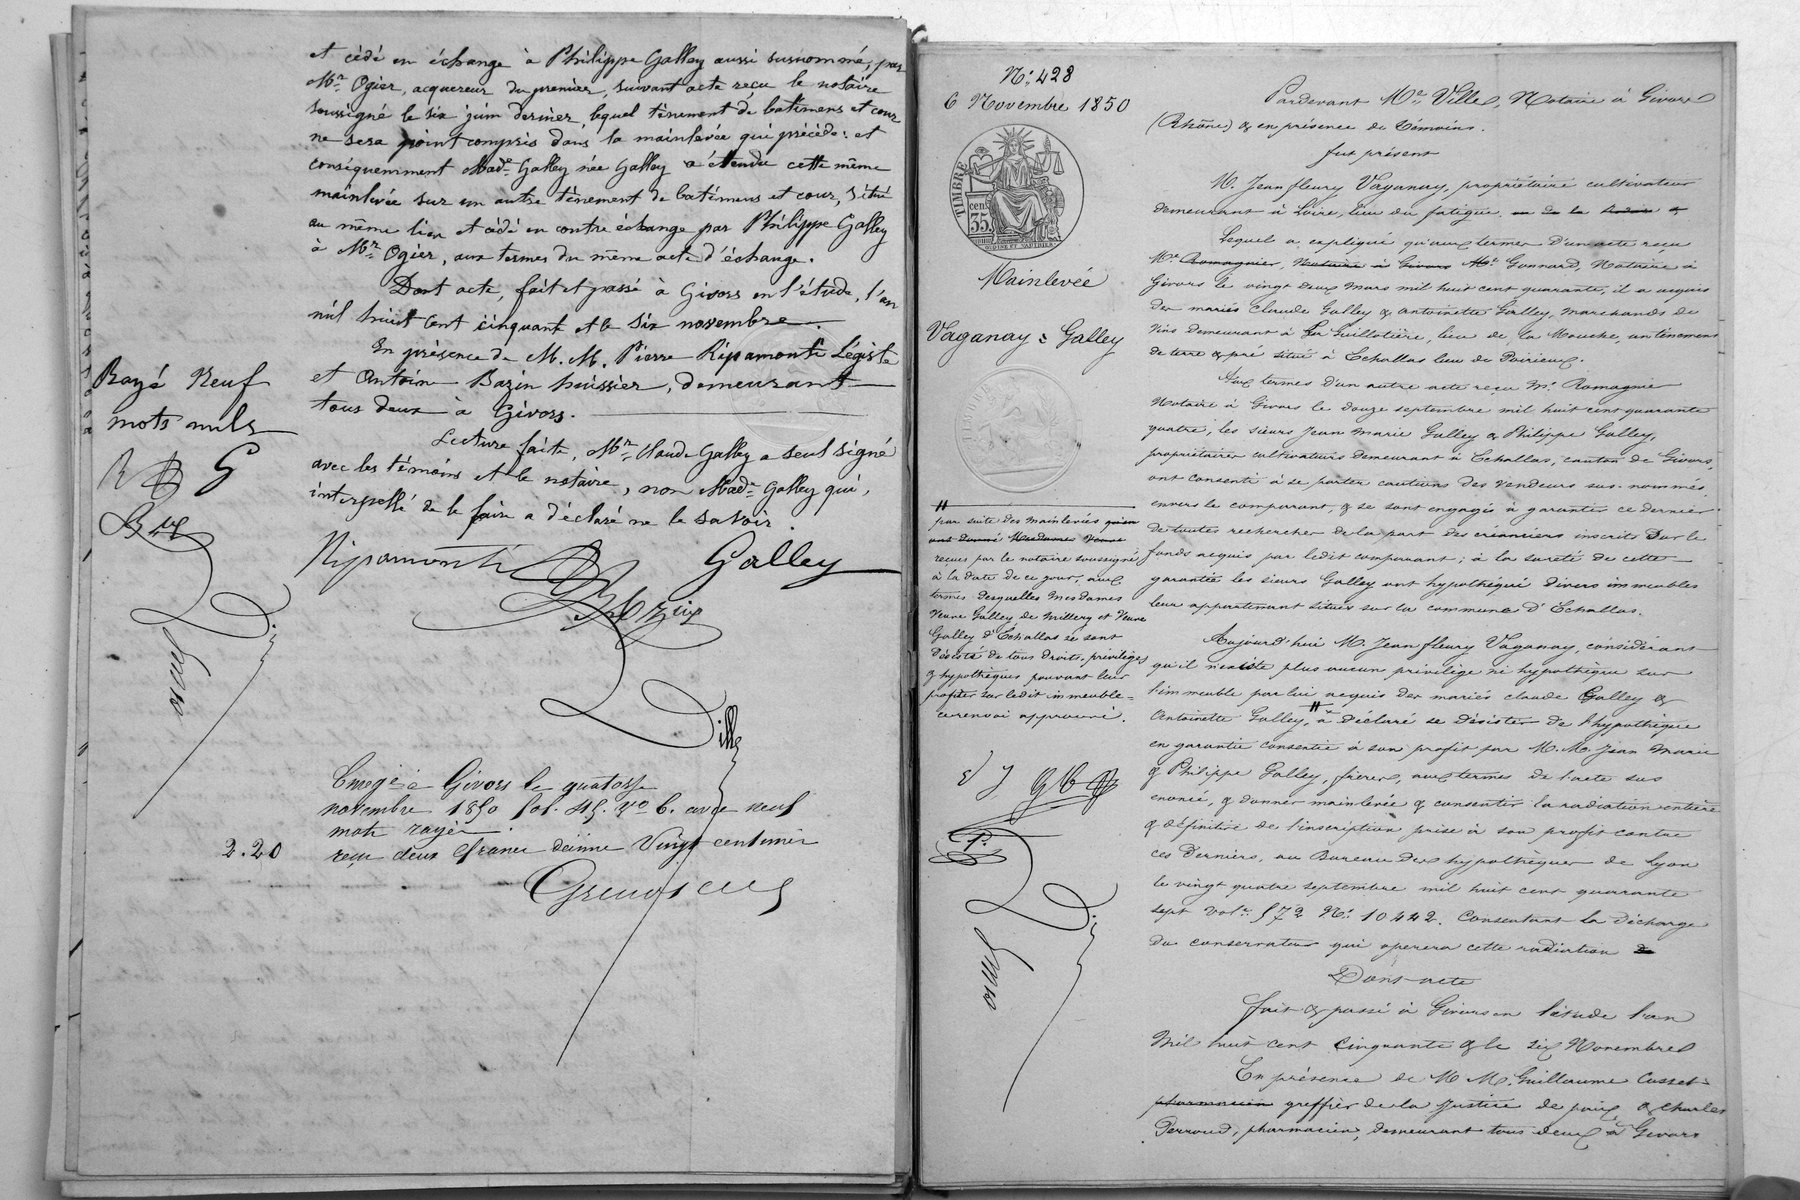 et cédé en échange à Philippe Galley aussi susnommé, par
Mr. Ogier, acquereur du premier, suivant acte reçu le notaire
soussigné le six juin dernier, lequel tènement de batimens et cour
ne sera point compris dans la mainlevée qui précède: et
conséquemment Made. Galley née Galley a étendu cette même
mainlevée sur un autre tènement de batimens et cour, situé
au même lieu et cédé en contre échange par Philippe Galley
à Mr. Ogier, aux termes du même acte d'échange.
Dont acte, fait et passé à Givors en l'étude, l'an
mil huit cent cinquant et le six novembre.
En présence de M. M. Pierre Ripamonti Légiste
et Antoine Bazin huissier, demeurant
tous deux à Givors.
Lecture faite, Mr. Claude Galley a seul signé
avec les témoins et le notaire, non Made. Galley qui,
interpellé de le faire a déclaré ne le savoir.
Rayé Neuf
mots nuls
G
Ripamonti
Galley
Bazin
Ville
Enregé à Givors le quatorze
novembre 1850 fol. 45. Vo 6. avec neuf
mots rayés
reçu deux francs décime Vingt centimes
2.20
No. 428
6 Novembre 1850
TIMBRE
cen.
35
Mainlevée
Vaganay = Galley
par suite des mainlevées qu'en
ont donné Mesdames Veuve
recues par le notaire soussigné
à la date de ce jour, aux
termes desquelles Mesdames
Veuve Galley de Millery et Veuve
Galley d'Échallas se sont
désisté de tous droits, privilèges
& hypothèques pouvant leur
profiter sur ledit immeuble =
ce renvoi approuvé.
Pardevant Me. Ville, Notaire à Givors
(Rhône) & en présence de témoins.
fut présent
M. Jean fleury Vaganay, propriétaire cultivateur
demeurant à Loire, lieu du fatigue, ou de la
Lequel a expliqué qu'aux termes d'un acte recu
Me. Romagnier, Notaire à Givors Me. Gonnard, Notaire à
Givors le vingt deux mars mil huit cent quarante, il a acquis
des mariés Claude Galley & Antoinette Galley, marchands de
vins demeurant à La Guillotière, lieu de la Mouche, un tènement
de terre & pré situé à Echallas lieu de Poirieux.
Aux termes d'un autre acte reçu Me. Romagnier
Notaire à Givors le douze septembre mil huit cent quarante
quatre, les sieurs Jean Marie Galley & Philippe Galley,
propriétaires cultivateurs demeurant à Echallas, canton de Givors,
ont consenti à se porter cautions des vendeurs sus-nommés
envers le comparant, & se sont engagés à garantir ce dernier
de toutes recherches de la part des créanciers inscrits sur le
fonds acquis par ledit comparant; à la sureté de cette
garantie les sieurs Galley ont hypothéqué divers immeubles
leur appartenant situés sur la commune d'Echallas.
Aujourd'hui M. Jean fleury Vaganay, considérant
qu'il n'existe plus aucun privilège ni hypothèque sur
l'immeuble par lui acquis des mariés Claude Galley &
Antoinette Galley, a déclaré se désister de l'hypothèque
en garantie consentie à son profit par M. M. Jean Marie
& Philippe Galley, frères, aux termes de l'acte sus
enoncé, & donner mainlevée & consentir la radiation entière
& définitive de l'inscription prise à son profit contre
ces derniers, au Bureau des hypothèques de Lyon
le vingt quatre septembre mil huit cent quarante
sept vol. 572 No. 10442. Consentant la décharge
du conservateur qui operera cette radiation
Dont acte
fait & passé à Givors en l'étude l'an
Mil huit cent cinquante & le six Novembre
En présence de M M. Guillaume Cusset
pharmacien greffier de la Justice de paix & Charles
Perroud, pharmacien, demeurant tous deux à Givors